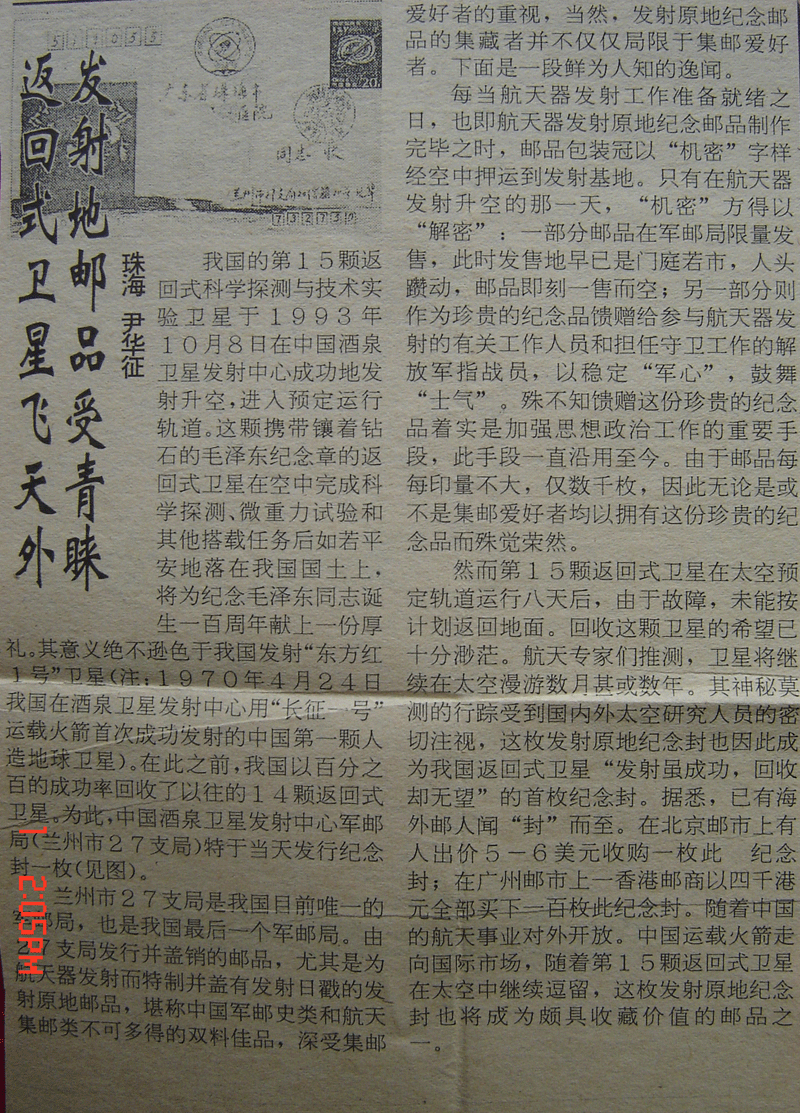 返回式卫星飞天外
发射地邮品受青睐
珠海 尹华征
20
同志 收
我国的第１５颗返
回式科学探测与技术实
验卫星于１９９３年
１０月８日在中国酒泉
卫星发射中心成功地发
射升空,进入预定运行
轨道。这颗携带镶着钻
石的毛泽东纪念章的返
回式卫星在空中完成科
学探测、微重力试验和
其他搭载任务后如若平
安地落在我国国土上，
将为纪念毛泽东同志诞
生一百周年献上一份厚
礼。其意义绝不逊色于我国发射“东方红
１号”卫星(注：１９７０年４月２４日
我国在酒泉卫星发射中心用“长征一号”
运载火箭首次成功发射的中国第一颗人
造地球卫星)。在此之前,我国以百分之
百的成功率回收了以往的１４颗返回式
卫星。为此,中国酒泉卫星发射中心军邮
局(兰州市２７支局)特于当天发行纪念
封一枚(见图)。
兰州市２７支局是我国目前唯一的
军邮局，也是我国最后一个军邮局。由
２７支局发行并盖销的邮品，尤其是为
航天器发射而特制并盖有发射日戳的发
射原地邮品，堪称中国军邮史类和航天
集邮类不可多得的双料佳品，深受集邮
爱好者的重视，当然，发射原地纪念邮
品的集藏者并不仅仅局限于集邮爱好
者。下面是一段鲜为人知的逸闻。
每当航天器发射工作准备就绪之
日，也即航天器发射原地纪念邮品制作
完毕之时，邮品包装冠以“机密”字样
经空中押运到发射基地。只有在航天器
发射升空的那一天，“机密”方得以
“解密”：一部分邮品在军邮局限量发
售，此时发售地早已是门庭若市，人头
躜动，邮品即刻一售而空；另一部分则
作为珍贵的纪念品馈赠给参与航天器发
射的有关工作人员和担任守卫工作的解
放军指战员，以稳定“军心”，鼓舞
“士气”。殊不知馈赠这份珍贵的纪念
品着实是加强思想政治工作的重要手
段，此手段一直沿用至今。由于邮品每
每印量不大，仅数千枚，因此无论是或
不是集邮爱好者均以拥有这份珍贵的纪
念品而殊觉荣然。
然而第１５颗返回式卫星在太空预
定轨道运行八天后，由于故障，未能按
计划返回地面。回收这颗卫星的希望已
十分渺茫。航天专家们推测，卫星将继
续在太空漫游数月甚或数年。其神秘莫
测的行踪受到国内外太空研究人员的密
切注视，这枚发射原地纪念封也因此成
为我国返回式卫星“发射虽成功，回收
却无望”的首枚纪念封。据悉，已有海
外邮人闻“封”而至。在北京邮市上有
人出价５－６美元收购一枚此　纪念
封；在广州邮市上一香港邮商以四千港
元全部买下一百枚此纪念封。随着中国
的航天事业对外开放。中国运载火箭走
向国际市场，随着第１５颗返回式卫星
在太空中继续逗留，这枚发射原地纪念
封也将成为颇具收藏价值的邮品之
一。